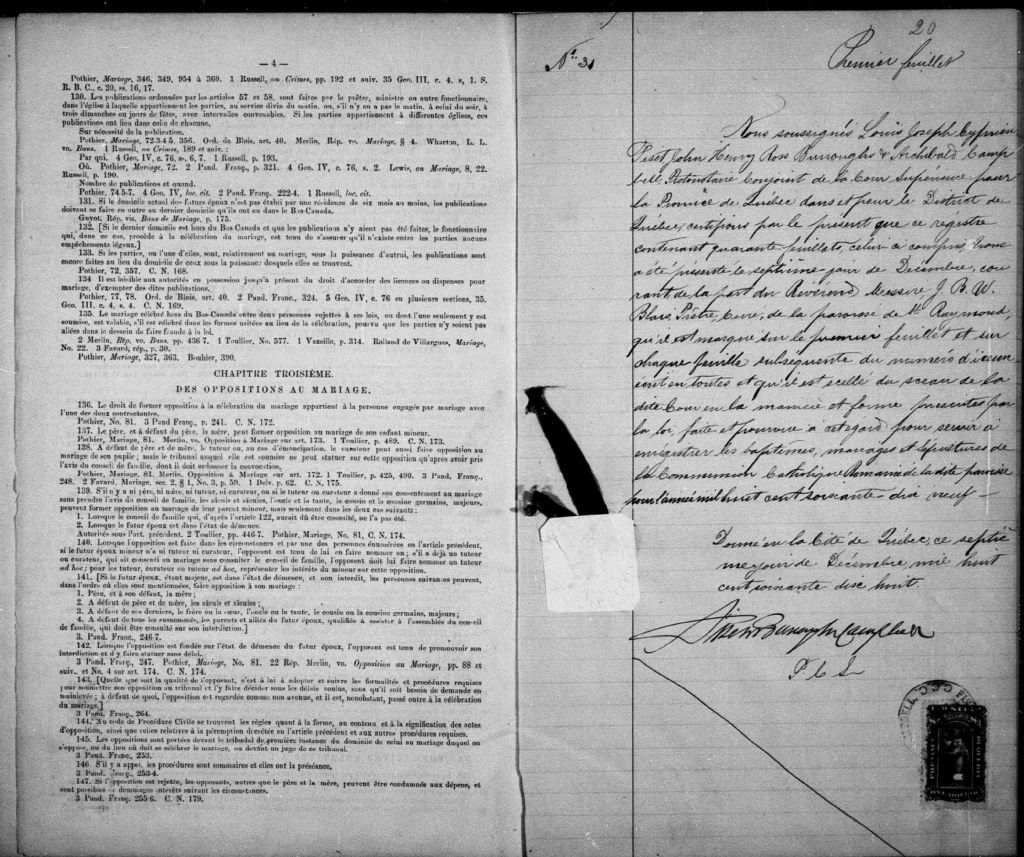 — 4 —
Pothier, Mariage, 346, 349, 954 à 360. 1 Russell, on Crimes, pp. 192 et suiv. 35 Geo. III, c. 4, s, 1. S.
R. B. C., c. 20, ss. 16, 17.
130. Les publications ordonnées par les articles 57 et 58, sont faites par le prêtre, ministre ou autre fonctionnaire,
dans l'église à laquelle appartiennent les parties, au service divin du matin, ou, s'il n'y en a pas le matin, à celui du soir, à
trois dimanches ou jours de fêtes, avec intervalles convenables. Si les parties appartiennent à différentes églises, ces
publications ont lieu dans celle de chacune.
Sur nécessité de la publication.
Pothier, Mariage, 72-3-4-5, 356. Ord. de Blois, art. 40. Merlin, Rép. vo. Mariage, § 4. Wharton, L. L.
vo. Bans. 1 Russell, on Crimes, 189 et suiv. :
Par qui. 4 Geo. IV, c. 76, s. 6, 7. 1 Russell, p. 193.
Où. Pothier, Mariage, 72. 2 Pand. Franç., p. 321. 4 Geo. IV, c. 76, s. 2. Lewis, on Mariage, 8, 22.
Russell, p. 190.
Nombre de publications et quand.
Pothier, 74-5-7. 4 Geo. IV, loc. cit. 2 Pand. Franç. 222-4. 1 Russell, loc. cit.
131. Si le domicile actuel des futurs époux n'est pas établi par une résidence de six mois au moins, les publications
doivent se faire en outre au dernier domicile qu'ils ont eu dans le Bas-Canada.
Guyot, Rép. vis. Bans de Mariage, p. 175.
132. [Si le dernier domicile est hors du Bas-Canada et que les publications n'y aient pas été faites, le fonctionnaire
qui, dans ce cas, procède à la célébration du mariage, est tenu de s'assurer qu'il n'existe entre les parties aucuns
empêchements légaux.]
133. Si les parties, ou l'une d'elles, sont, relativement au mariage, sous la puissance d'autrui, les publications sont
encore faites au lieu du domicile de ceux sous la puissance desquels elles se trouvent.
Pothier, 72, 357. C. N. 168.
134 Il est loisible aux autorités en possession jusqu'à présent du droit d'accorder des licences ou dispenses pour
mariage, d'exempter des dites publications.
Pothier, 77, 78. Ord. de Blois, art. 40. 2 Pand. Franc., 324. 5 Geo. IV, c. 76 en plusieurs sections, 35.
Geo. III, c. 4, s. 4. C. N. 169.
135. Le mariage célébré hors du Bas-Canada entre deux personnes sujettes à ses lois, ou dont l'une seulement y est
soumise, est valable, s'il est célébré dans les formes usitées au lieu de la célébration, pourvu que les parties n'y soient pas
allées dans le dessein de faire fraude à la loi.
2 Merlin, Rép. vo. Bans, pp. 436-7. 1 Toullier, No. 577. 1 Vazeille, p. 314. Rolland de Villargues, Mariage,
No. 22. 3 Favard, rép., p. 30.
Pothier, Mariage, 327, 363. Bouhier, 390.
CHAPITRE TROISIÈME.
DES OPPOSITIONS AU MARIAGE.
136. Le droit de former opposition à la célébration du mariage appartient à la personne engagée par mariage avec
l'une des deux contractantes.
Pothier, No. 81. 3 Pand Franç., p. 241. C. N. 172.
137. Le père, et à défaut du père, la mère, peut former opposition au mariage de son enfant mineur.
Pothier, Mariage, 81. Merlin, vo. Opposition à Mariage sur art. 173. 1 Toullier, p. 489. C. N. 173.
138. A défaut de père et de mère, le tuteur ou, au cas d'émancipation, le curateur peut aussi faire opposition au
mariage de son pupille ; mais le tribunal auquel elle est soumise ne peut statuer sur cette opposition qu'après avoir pris
l'avis du conseil de famille, dont il doit ordonner la convocation.
Pothier, Mariage, 81. Merlin, Opposition à Mariage sur art. 172. 1 Toullier, p. 425, 490. 3 Pand. Franç.,
248. 2 Favard, Mariage, sec. 2, § 1, No. 3, p. 59. 1 Delv. p. 62. C. N. 175.
139. S'il n'y a ni père, ni mère, ni tuteur, ni curateur, ou si le tuteur ou curateur a donné son consentement au mariage
sans prendre l'avis du conseil de famille, les aïeuls et aïeules, l'oncle et la tante, le cousin et la cousine germains, majeurs,
peuvent former opposition au mariage de leur parent mineur, mais seulement dans les deux cas suivants :
1. Lorsque le conseil de famille qui, d'après l'article 122, aurait dû être consulté, ne l'a pas été.
2. Lorsque le futur époux est dans l'état de démence.
Autorités sous l'art. précédent. 2 Toullier, pp. 446-7. Pothier, Mariage, No. 81, C. N. 174.
140. Lorsque l'opposition est faite dans les circonstances et par une des personnes énumérées en l'article précédent,
si le futur époux mineur n'a ni tuteur ni curateur, l'opposant est tenu de lui en faire nommer un ; s'il a déjà un tuteur
ou curateur, qui ait consenti au mariage sans consulter le conseil de famille, l'opposant doit lui faire nommer un tuteur
ad hoc ; pour les tuteur, curateur ou tuteur ad hoc, représenter les intérêts du mineur sur cette opposition.
141. [Si le futur époux, étant majeur, est dans l'état de démence, et non interdit, les personnes suivantes peuvent,
dans l'ordre où elles sont mentionnées, faire opposition à son mariage :
1. Père, et à son défaut, la mère ;
2. A défaut de père et de mère, les aïeuls et aïeules ;
3. A défaut de ces derniers, le frère ou la sœur, l'oncle ou la tante, le cousin ou la cousine germains, majeurs ;
4. A défaut de tous les susnommés, les parents et alliés du futur époux, qualifiés à assister à l'assemblée du conseil
de famille, qui doit être consulté sur son interdiction.]
3. Pand. Franç., 246-7.
142. Lorsque l'opposition est fondée sur l'état de démence du futur époux, l'opposant est tenu de promouvoir son
interdiction et d'y faire statuer sans délai.
3 Pand. Franç., 247. Pothier, Mariage, No. 81. 22 Rép. Merlin, vo. Opposition au Mariage, pp. 88 et
suiv., et No. 4 sur art. 174. C. N. 174.
143. [Quelle que soit la qualité de l'opposant, c'est à lui à adopter et suivre les formalités et procédures requises
pour soumettre son opposition au tribunal et l'y faire décider sous les délais voulus, sans qu'il soit besoin de demande en
mainlevée ; à défaut de quoi, l'opposition est regardée comme non avenue, et il est, nonobstant, passé outre à la célébration
du mariage.]
3 Pand. Franç., 264.
144. Au code de Procédure Civile se trouvent les règles quant à la forme, au contenu et à la signification des actes
d'opposition, ainsi que celles relatives à la péremption décrétée en l'article précédent et aux autres procédures requises.
145. Les oppositions sont portées devant le tribunal de première instance du domicile de celui au mariage duquel on
s'oppose, ou du lieu où doit se célébrer le mariage, ou devant un juge de ce tribunal.
3 Pand. Franc., 253.
146. S'il y a appel, les procédures sont sommaires et elles ont la préséance.
3 Pand. Franç., 253-4.
147. Si l'opposition est rejetée, les opposants, autres que le père et la mère, peuvent être condamnés aux dépens, et
sont passibles de dommages-intérêts suivant les circonstances.
3 Pand. Franç. 255-6. C. N. 179.
20
No. 31
Premier feuillet
Nous soussignés Louis Joseph Cyprien
Fiset, John Henry Ross Burroughs & Archibald Camp
bell Protonotaire Conjoint de la Cour Supérieure pour
la Province de Québec dans et pour le District de
Québec, certifions par le présent que ce registre
contenant quarante feuillets, celui ci compris, nous
a été présenté le septième jour de Décembre, cou
rant de la part du Révérend Messire J. B. W.
Blais, Prêtre, Curé, de la paroisse de St. Raymond,
qu'il est marqué sur le premier feuillet et sur
chaque feuille subséquente du numéro d'icelui
écrit en toutes et qu'il est scellé du sceau de la
dite Cour en la manière et forme prescrites par
la loi, faite et pourvue à cet égard pour servir à
enregistrer les baptêmes, mariages et sépultures de
la Communion Catholique Romaine de la dite paroisse
pour l'année mil huit cent soixante-dix neuf —
Donné en la Cité de Québec, ce septiè
me jour de Décembre, mil huit
cent soixante dix huit.
Fiset Burroughs Campbell
P. C. S.
ONE DOLLAR